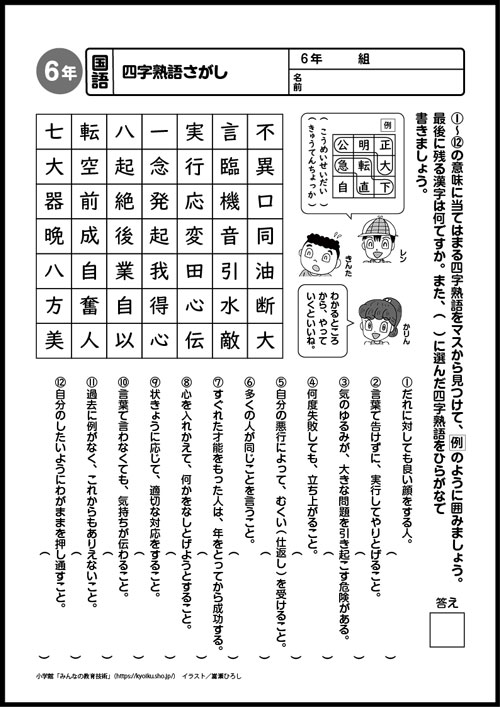 6年
国語
四字熟語さがし
6年　組
名前
①〜⑫の意味に当てはまる四字熟語をマスから見つけて、例のように囲みましょう。
最後に残る漢字は何ですか。また、（　）に選んだ四字熟語をひらがなで
書きましょう。
答え
例
公明正
急転大
自直下
（こうめいせいだい）
（きゅうてんちょっか）
レン
きんた
かりん
わかるところ
から、やって
いくといいね。
七転八一実言不
大空起念行臨異
器前絶発応機口
晩成後起変音同
八自業我田引油
方奮自得心水断
美人以心伝敵大
①だれに対しても良い顔をする人。（　）
②言葉で告げずに、実行してやりとげること。（　）
③気のゆるみが、大きな問題を引き起こす危険がある。（　）
④何度失敗しても、立ち上がること。（　）
⑤自分の悪行によって、むくい（仕返し）を受けること。（　）
⑥多くの人が同じことを言うこと。（　）
⑦すぐれた才能をもった人は、年をとってから成功する。（　）
⑧心を入れかえて、何かをなしとげようとすること。（　）
⑨状きょうに応じて、適切な対応をすること。（　）
⑩言葉で言わなくても、気持ちが伝わること。（　）
⑪過去に例がなく、これからもありえないこと。（　）
⑫自分のしたいようにわがままを押し通すこと。（　）
小学館「みんなの教育技術」（https://kyoiku.sho.jp/）　イラスト／富瀬ひろし